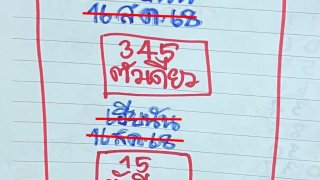 16 ส.ค. 68
345
ตัวเดียว
เฮียนัน
16 ส.ค. 68
15